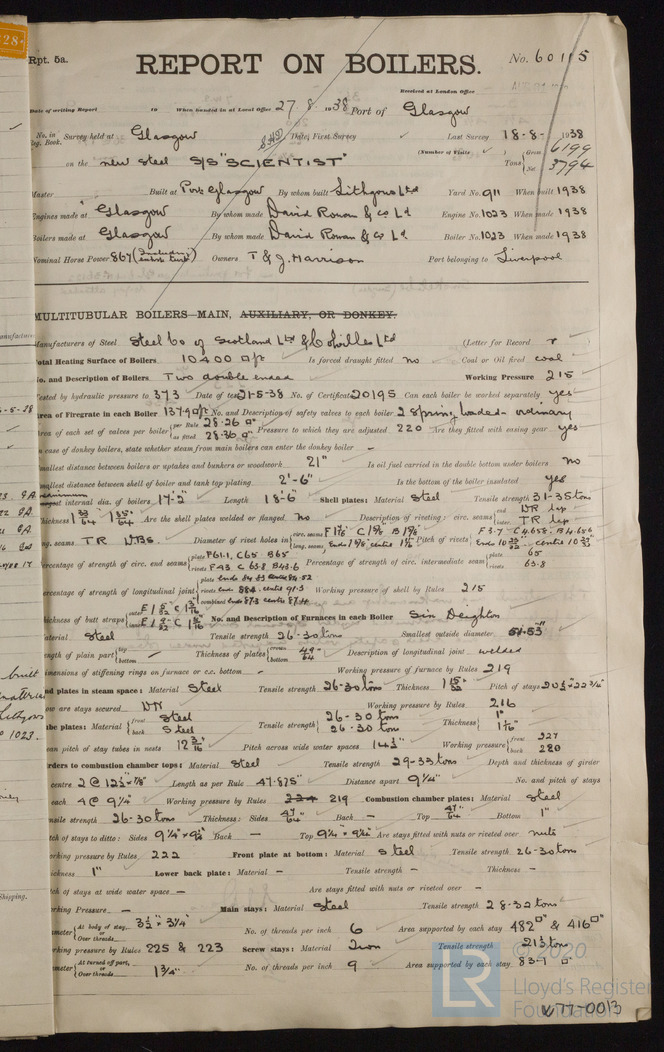 Rpt. 5a.
REPORT ON BOILERS.
No. 60115
Received at London Office
Date of writing Report 19 When handed in at Local Office 27.8.1938 Port of Glasgow
No. in Survey held at Glasgow Date, First Survey Last Survey 18-8-1938
Reg. Book.
(Number of Visits)
on the new steel S/S "SCIENTIST" Tons Gross 6199 Net 3794
Master Built at Port Glasgow By whom built Lithgows Ltd Yard No. 911 When built 1938
Engines made at Glasgow By whom made David Rowan & Co Ld Engine No. 1023 When made 1938
Boilers made at Glasgow By whom made David Rowan & Co Ld Boiler No. 1023 When made 1938
Nominal Horse Power 867 Owners T & J. Harrison Port belonging to Liverpool
MULTITUBULAR BOILERS MAIN, AUXILIARY, OR DONKEY.
Manufacturers of Steel Steel Co of Scotland Ltd & Colvilles Ltd (Letter for Record r)
Total Heating Surface of Boilers 10400 Is forced draught fitted no Coal or Oil fired coal
No. and Description of Boilers Two double ended Working Pressure 215
Tested by hydraulic pressure to 373 Date of test 21-5-38 No. of Certificate 20195 Can each boiler be worked separately yes
Area of Firegrate in each Boiler 137.9 No. and Description of safety valves to each boiler 2 Spring loaded - ordinary
Area of each set of valves per boiler per Rule 28.26 as fitted 28.36 Pressure to which they are adjusted 220 Are they fitted with easing gear yes
In case of donkey boilers, state whether steam from main boilers can enter the donkey boiler -
Smallest distance between boilers or uptakes and bunkers or woodwork 21" Is oil fuel carried in the double bottom under boilers no
Smallest distance between shell of boiler and tank top plating 2'-6" Is the bottom of the boiler insulated yes
Largest internal dia. of boilers 17-2" Length 18-6" Shell plates: Material Steel Tensile strength 31-35 tons
Thickness 1 33/64 1 35/64 Are the shell plates welded or flanged no Description of riveting: circ. seams end DR lap inter. TR lap
long. seams TR DBS. Diameter of rivet holes in circ. seams long. seams Pitch of rivets
Percentage of strength of circ. end seams plate F61.1, C65 B65 rivets F43 C63.8 B43.6 Percentage of strength of circ. intermediate seam plate 65 rivets 63.8
Percentage of strength of longitudinal joint plate rivets combined Working pressure of shell by Rules 215
Thickness of butt straps outer inner No. and Description of Furnaces in each Boiler Six Deighton
Material Steel Tensile strength 26-30 tons Smallest outside diameter 51.53"
Length of plain part top bottom Thickness of plates crown bottom 49/64 Description of longitudinal joint welded
Dimensions of stiffening rings on furnace or c.c. bottom - Working pressure of furnace by Rules 219
End plates in steam space: Material Steel Tensile strength 26-30 tons Thickness 1 15/32 Pitch of stays 20 1/2 × 22 3/4"
How are stays secured DN Working pressure by Rules 216
Tube plates: Material front Steel back Steel Tensile strength 26-30 tons 26-30 tons Thickness 1" 1 1/16"
Mean pitch of stay tubes in nests 12 3/16 Pitch across wide water spaces 14 1/2" Working pressure front 227 back 280
Girders to combustion chamber tops: Material Steel Tensile strength 29-33 tons Depth and thickness of girder
at centre 2 @ 12 1/2 × 7/8" Length as per Rule 47.875" Distance apart 9 1/4" No. and pitch of stays
in each 4 @ 9 1/4" Working pressure by Rules 219 Combustion chamber plates: Material Steel
Tensile strength 26-30 tons Thickness: Sides 47/64" Back - Top 47/64 Bottom 1"
Pitch of stays to ditto: Sides 9 1/4" × 9 1/4" Back - Top 9 1/4" × 9 1/4" Are stays fitted with nuts or riveted over nuts
Working pressure by Rules 222 Front plate at bottom: Material Steel Tensile strength 26-30 tons
Thickness 1" Lower back plate: Material - Tensile strength - Thickness -
Pitch of stays at wide water space - Are stays fitted with nuts or riveted over -
Working Pressure - Main stays: Material Steel Tensile strength 28-32 tons
Diameter At body of stay, or Over threads 3 1/2" & 3 1/4" No. of threads per inch 6 Area supported by each stay 482 & 416
Working pressure by Rules 225 & 223 Screw stays: Material Iron Tensile strength 21 1/2 tons
Diameter At turned off part, or Over threads 1 3/4" No. of threads per inch 9 Area supported by each stay 83.7
© 2020
Lloyd's Register
Foundation
W77-0013